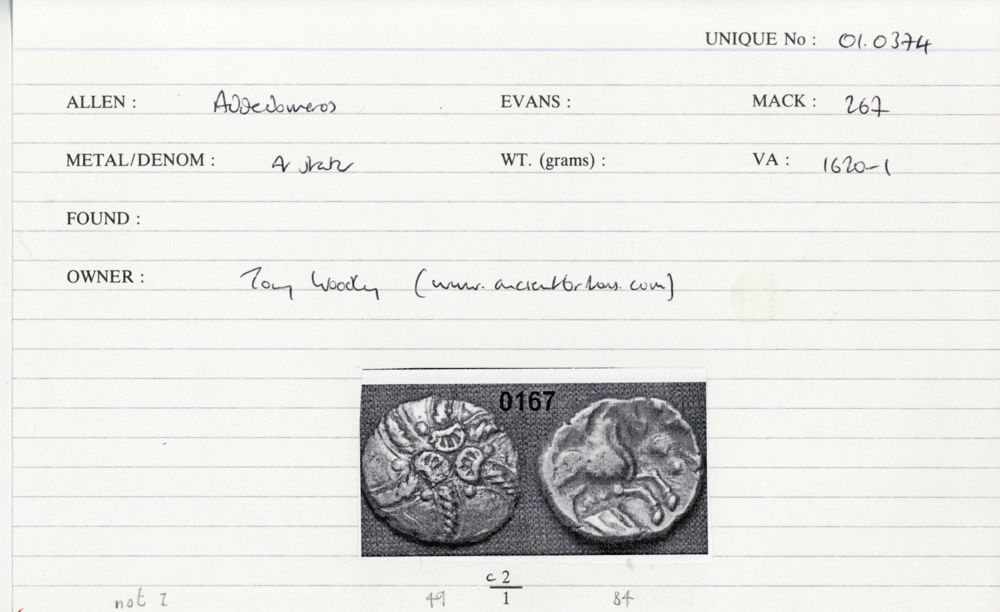 UNIQUE No : 01.0374
ALLEN : Addedomeros EVANS : MACK : 267
METAL/DENOM : AV stater WT. (grams) : VA : 1620-1
FOUND :
OWNER : Tony Woodey (www.ancientbritons.com)
0167
c 2
not I 49 1 84